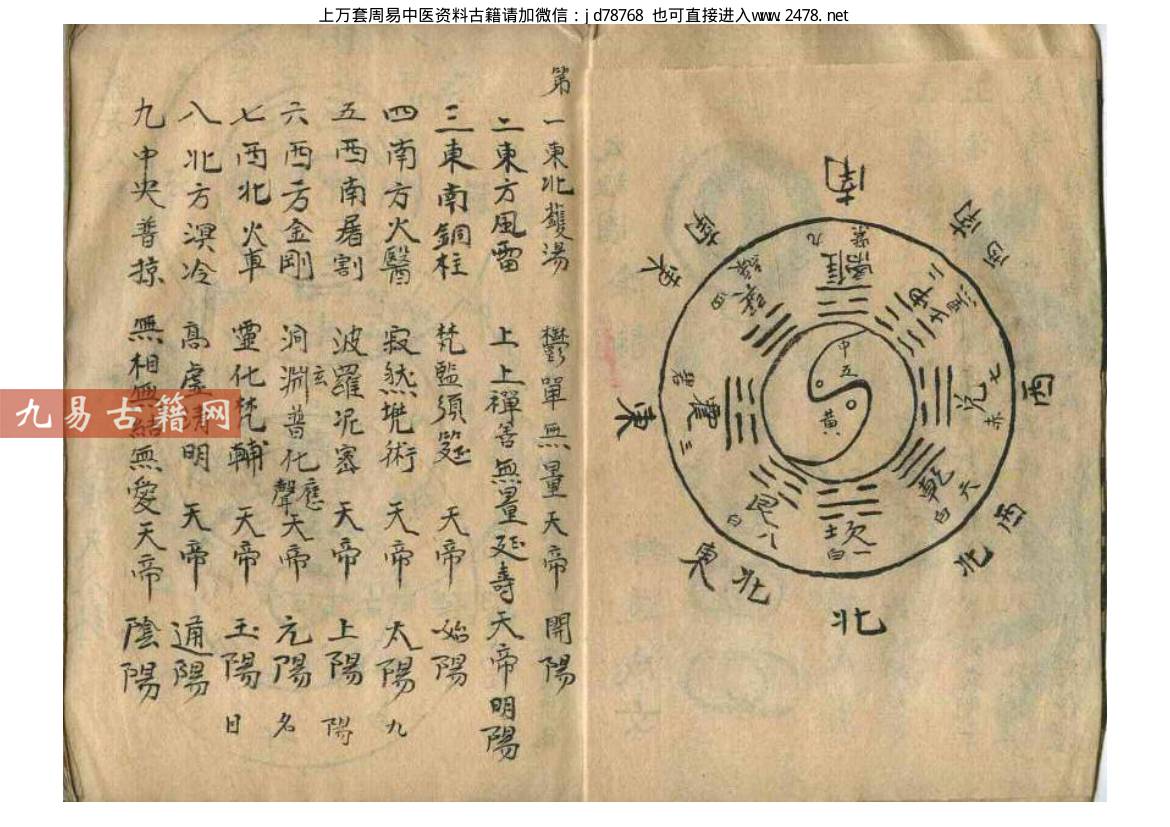 上万套周易中医资料古籍请加微信：jd78768 也可直接进入www.2478.net
南
西南
西
西北
北
東北
東
東南
離
九
紫
坤
二
黑
兌
七
赤
乾
六
白
坎
一
白
艮
八
白
震
三
碧
巽
四
綠
中
五
黃
第一東北鑊湯 鬱單無量天帝 開陽
二東方風雷 上上禪善無量延壽天帝 明陽
三東南銅柱 梵監須筵 天帝 始陽
四南方火醫 寂然兠術 天帝 太陽 九
五西南屠割 波羅泥密 天帝 上陽 陽
六西方金剛 洞玄淵普化應聲天帝 元陽 名
七西北火車 靈化梵輔 天帝 玉陽 日
八北方溟冷 高虛清明 天帝 通陽
九中央普掠 無相無結無愛天帝 陰陽
九易古籍网